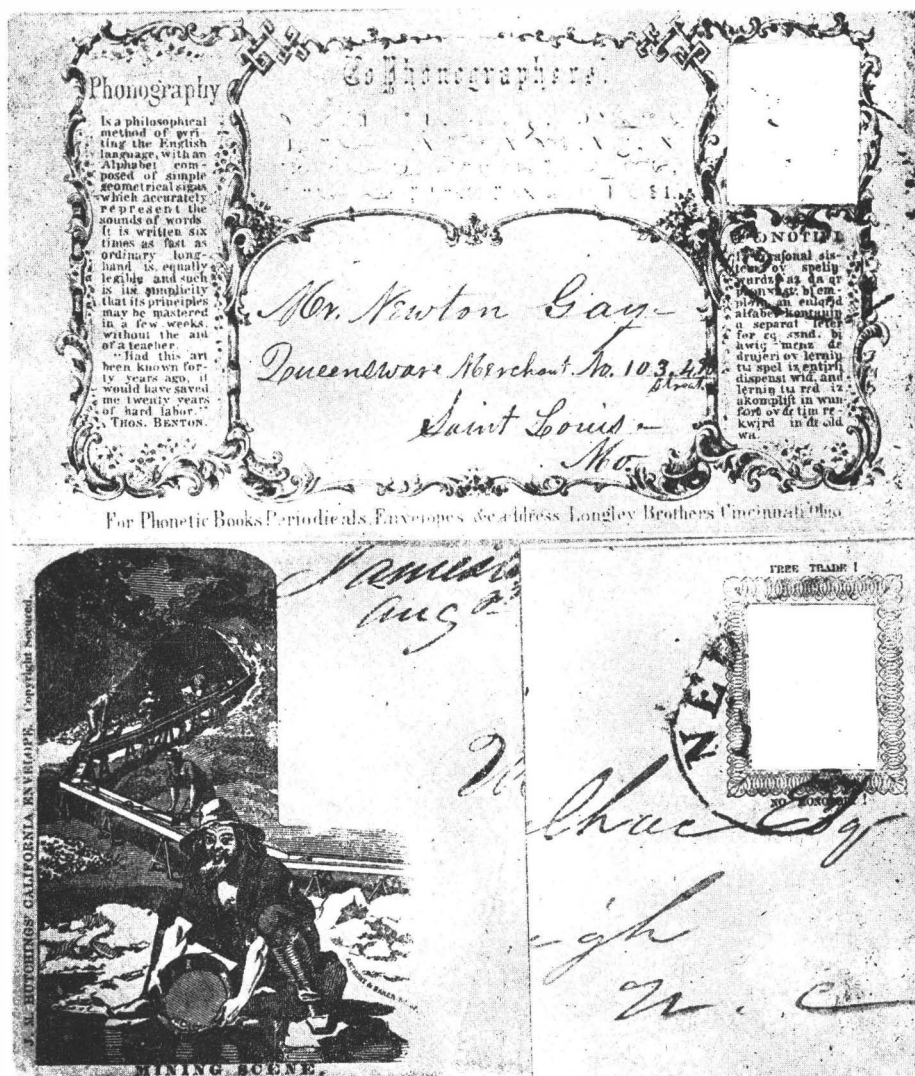 To Phonographers!
Phonography
Is a philosophical
method of wri-
ting the English
language, with an
Alphabet com-
posed of simple
geometrical signs
which accurately
represent the
sounds of words.
It is written six
times as fast as
ordinary long-
hand is equally
legible and such
is its simplicity
that its principles
may be mastered
in a few weeks,
without the aid
of a teacher.
"Had this art
been known for-
ty years ago, it
would have saved
me twenty years
of hard labor."
THOS. BENTON.
Mr. Newton Gay
Queensware Merchant, No. 103, 4th
Street
Saint Louis
Mo.
sis-
ov spelin
wurdz az
an
alfabet kontanin
a separat leter
for
menz
ov lernin
tu spel iz entirli
dispenst wid, and
lernin tu red iz
akomplist in wun
fort ov tim re-
kwird in old
wa.
For Phonetic Books Periodicals, Envelopes &c address Longley Brothers Cincinnati Ohio
J. M. HUTCHINGS' CALIFORNIA ENVELOPE, Copyright Secured.
MINING SCENE.
Aug
FREE TRADE!
NEW
NO MONOPOLY!
Esq
gh
N. C